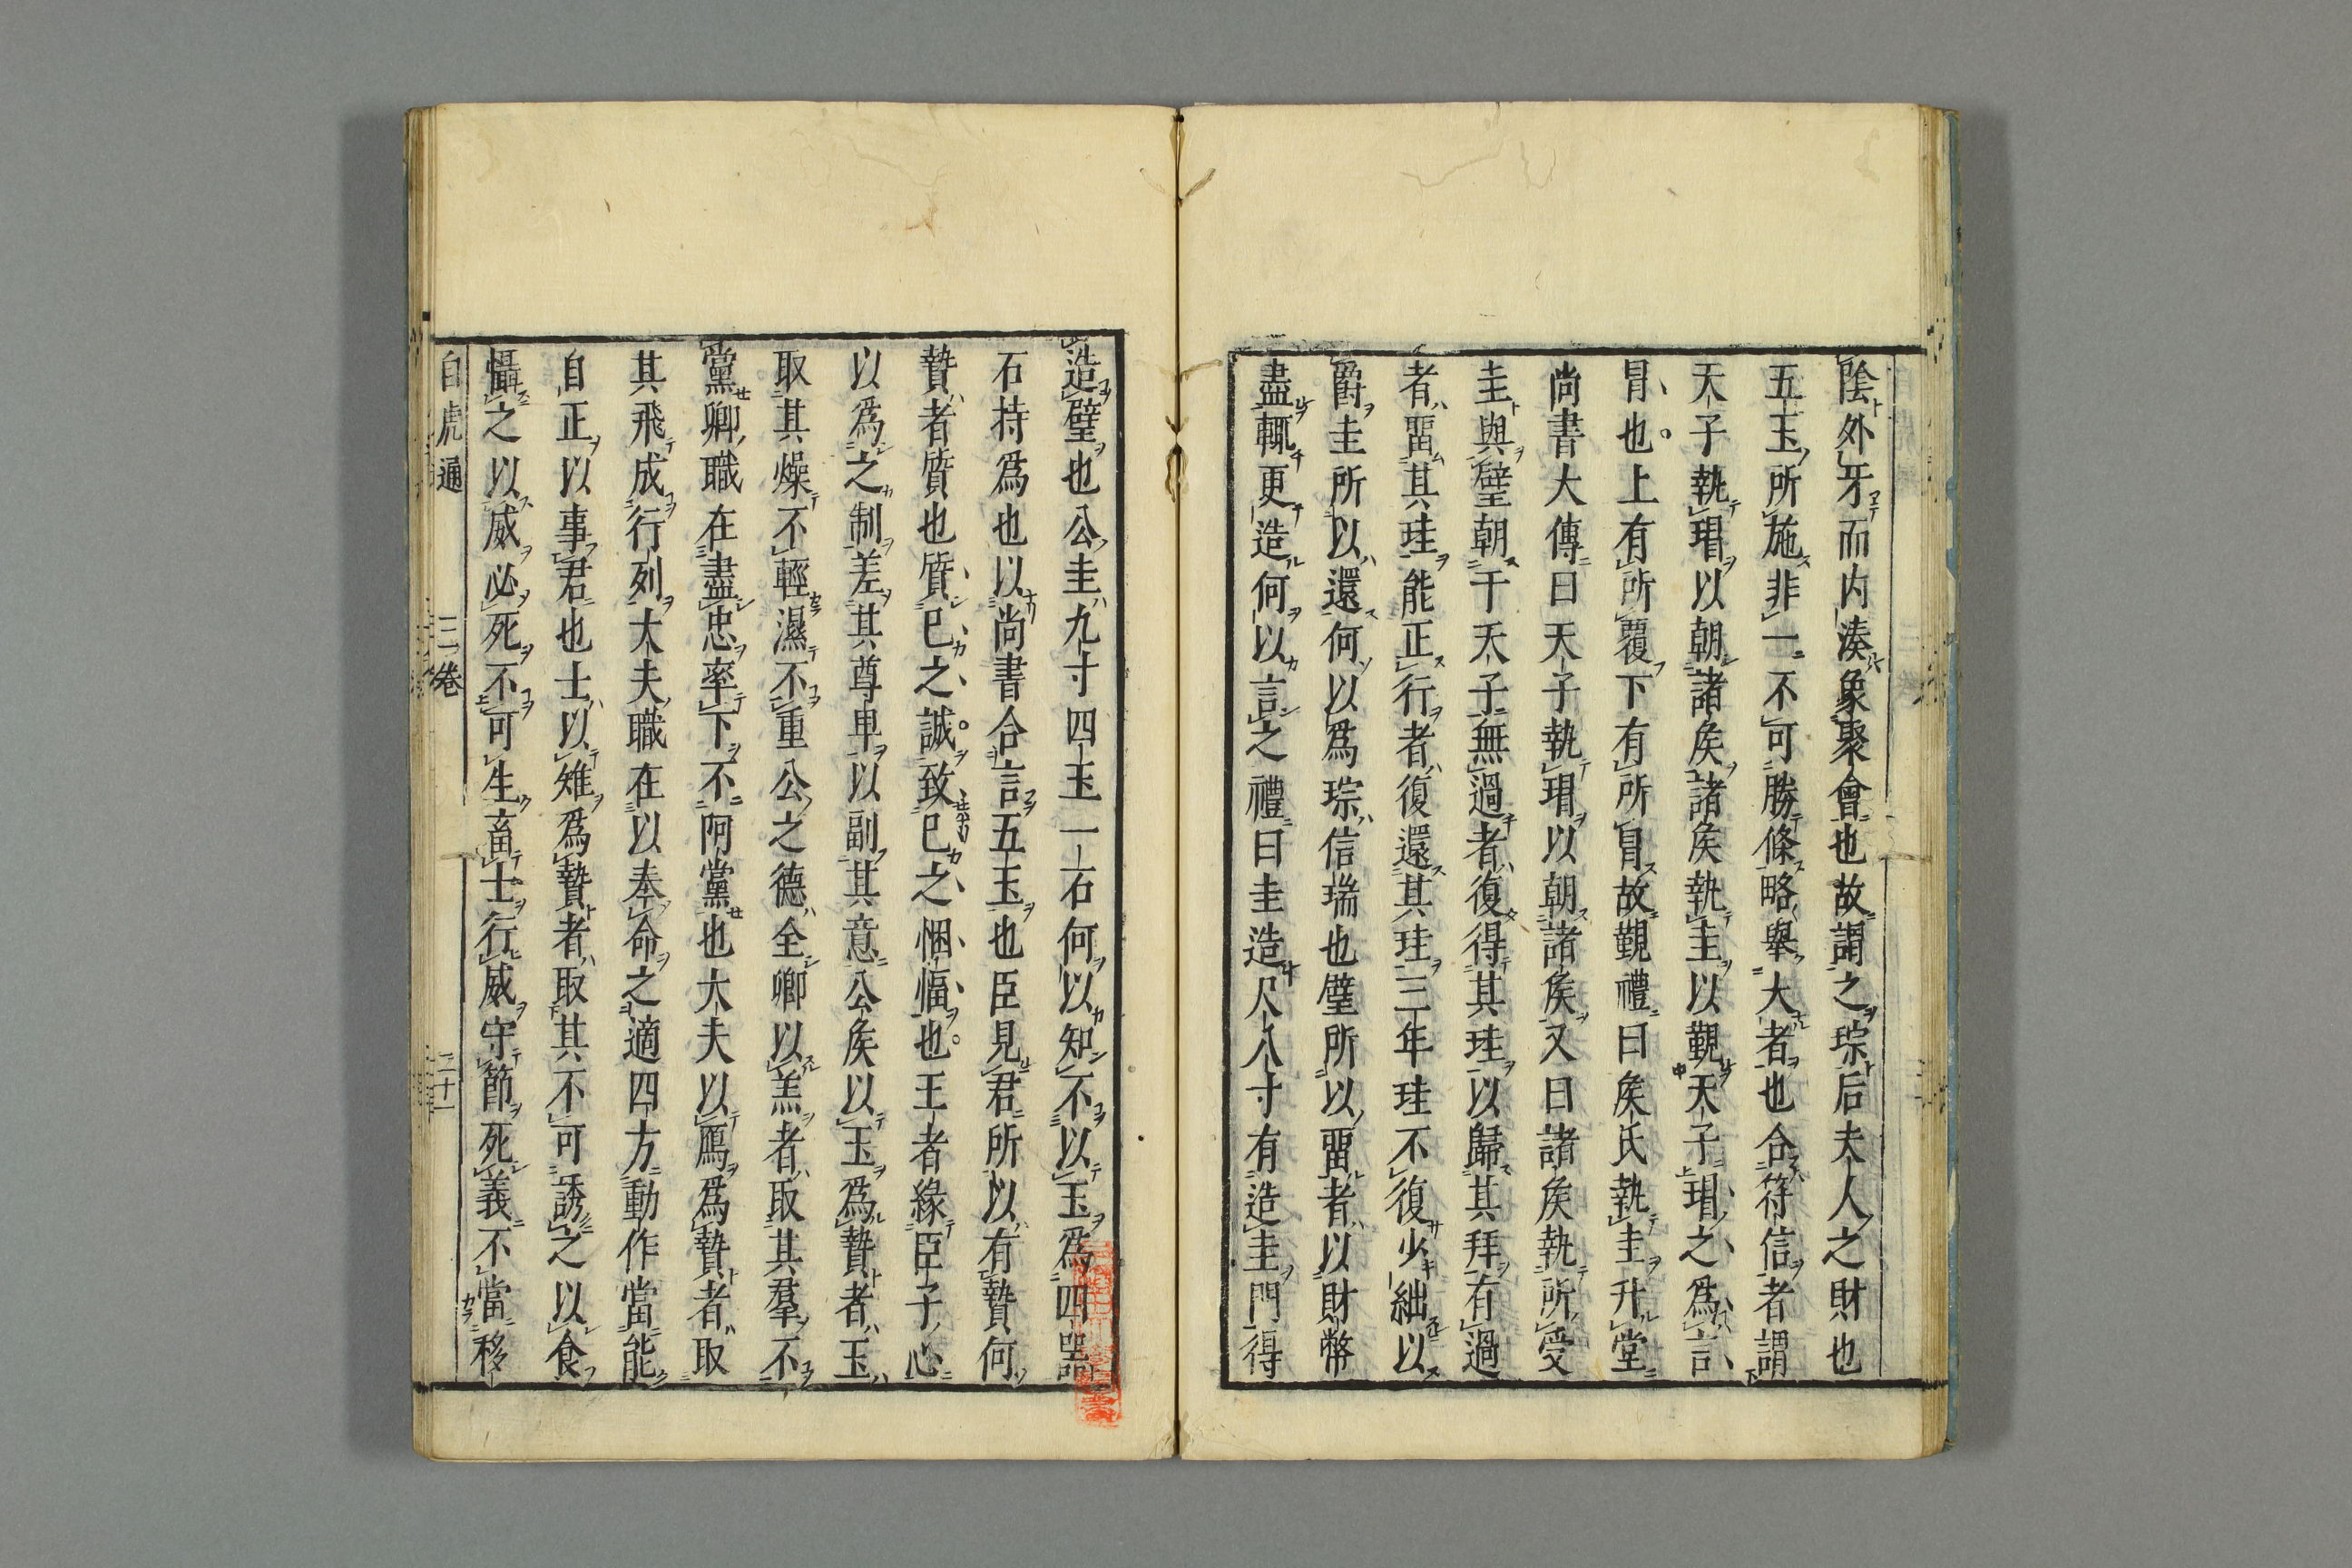 陰外牙而内湊象聚會也故謂之琮后夫人之財也
五玉所施非一不可勝條略舉大者也合符信者謂
天子執瑁以朝諸矦諸矦執圭以覲天子瑁之爲言
冒也上有所覆下有所冒故覲禮曰矦氏執圭升堂
尚書大傳曰天子執瑁以朝諸矦又曰諸矦執所受
圭與璧朝于天子無過者復得其珪以歸其拜有過
者畱其珪能正行者復還其珪三年珪不復少絀以
爵圭所以還何以爲琮信瑞也璧所以畱者以財幣
盡輒更造何以言之禮曰圭造尺八寸有造圭門得
造璧也公圭九寸四玉一石何以知不以玉爲四器
石持爲也以尚書合言五玉也臣見君所以有贄何
贄者質也質已之誠致已之悃愊也王者緣臣子心
以爲之制差其尊卑以副其意公矦以玉爲贄者玉
取其燥不輕濕不重公之德全卿以羔者取其羣不
黨卿職在盡忠率下不阿黨也大夫以鴈爲贄者取
其飛成行列大夫職在以奉命之適四方動作當能
自正以事君也士以雉爲贄者取其不可誘之以食
懾之以威必死不可生畜士行威守節死義不當移
白虎通 三卷 二十一